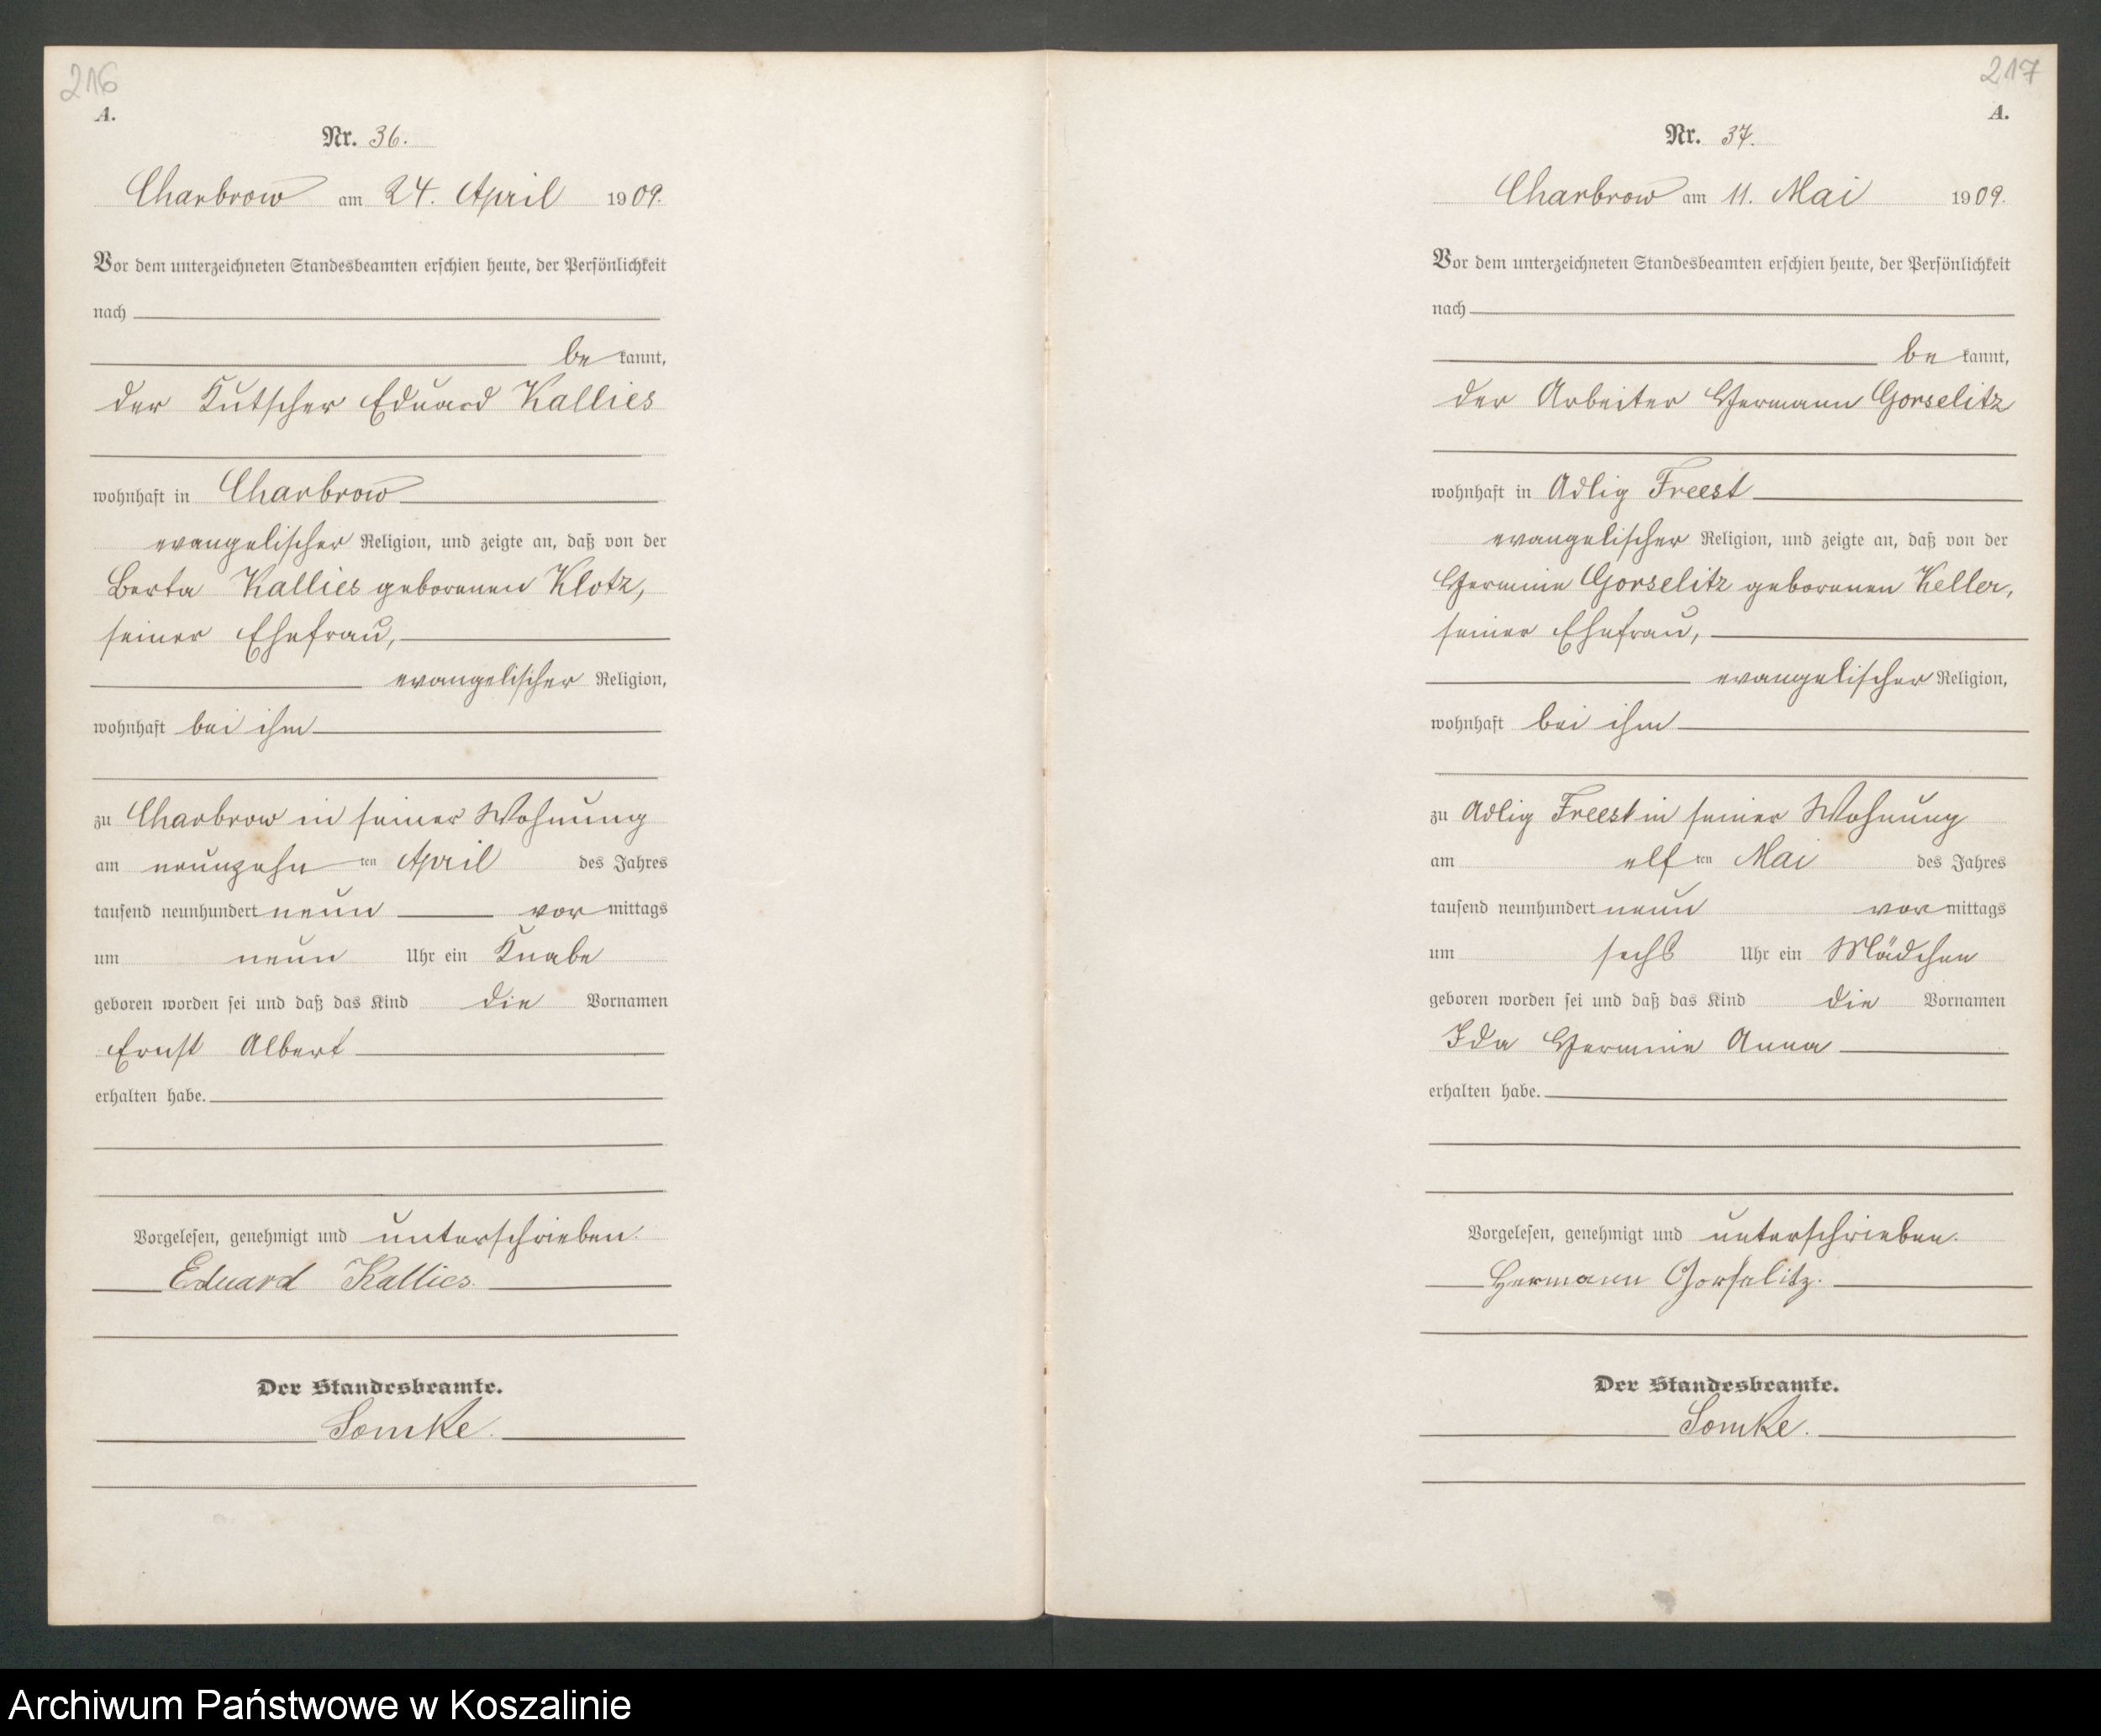 216
A.
Nr. 36.
Charbrow am 24. April 1909.
Vor dem unterzeichneten Standesbeamten erschien heute, der Persönlichkeit
nach
be kannt,
der Kutscher Eduard Kallies
wohnhaft in Charbrow
evangelischer Religion, und zeigte an, daß von der
Berta Kallies geborenen Klotz,
seiner Ehefrau,
evangelischer Religion,
wohnhaft bei ihm
zu Charbrow in seiner Wohnung
am neunzehn ten April des Jahres
tausend neunhundert neun vor mittags
um neun Uhr ein Knabe
geboren worden sei und daß das Kind die Vornamen
Ernst Albert
erhalten habe.
Vorgelesen, genehmigt und unterschrieben.
Eduard Kallies.
Der Standesbeamte.
Somke.
217
A.
Nr. 37.
Charbrow am 11. Mai 1909.
Vor dem unterzeichneten Standesbeamten erschien heute, der Persönlichkeit
nach
be kannt,
der Arbeiter Hermann Gorselitz
wohnhaft in Adlig Freest
evangelischer Religion, und zeigte an, daß von der
Hermine Gorselitz geborenen Keller,
seiner Ehefrau,
evangelischer Religion,
wohnhaft bei ihm
zu Adlig Freest in seiner Wohnung
am elf ten Mai des Jahres
tausend neunhundert neun vor mittags
um sechs Uhr ein Mädchen
geboren worden sei und daß das Kind die Vornamen
Ida Hermine Anna
erhalten habe.
Vorgelesen, genehmigt und unterschrieben.
Hermann Gorselitz.
Der Standesbeamte.
Somke.
Archiwum Państwowe w Koszalinie